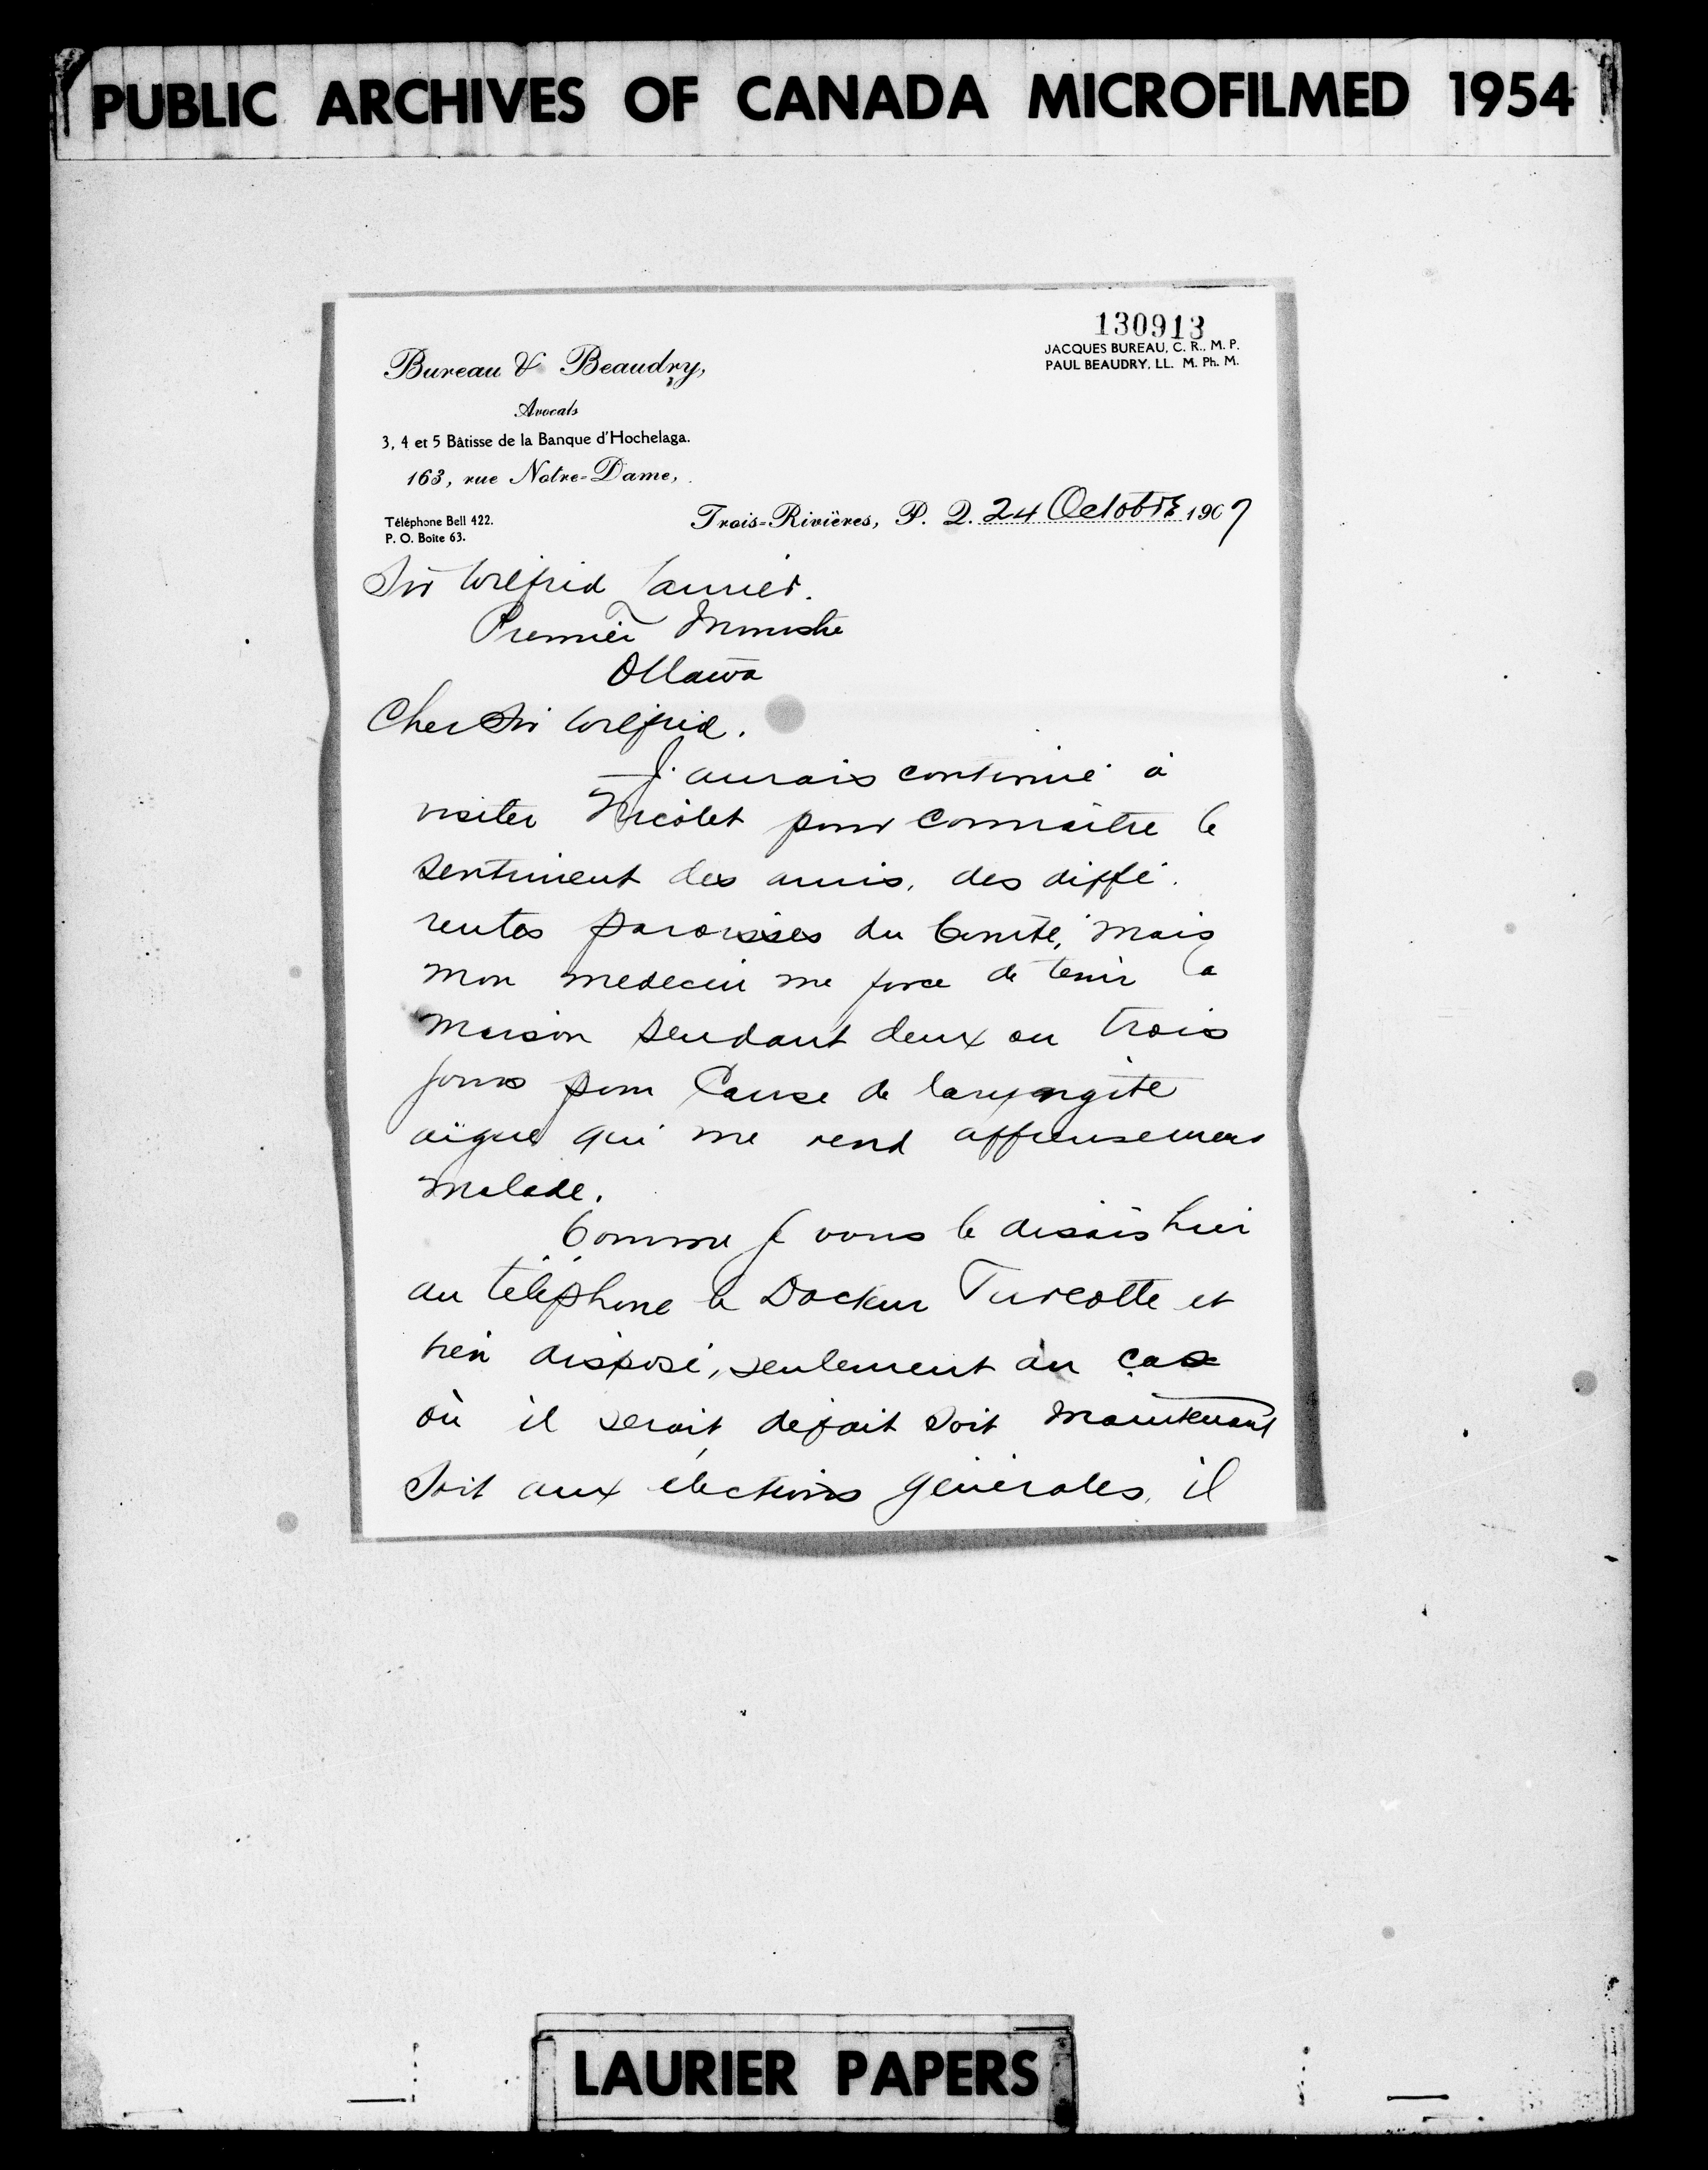 PUBLIC ARCHIVES OF CANADA MICROFILMED 1954
130913
JACQUES BUREAU, C. R., M. P.
PAUL BEAUDRY, LL. M. Ph. M.
Bureau & Beaudry,
Avocats
3, 4 et 5 Bâtisse de la Banque d'Hochelaga.
163, rue Notre-Dame,
Téléphone Bell 422.
P. O. Boite 63.
Trois-Rivières, P. Q. 24 Octobre 1907
Sir Wilfrid Laurier.
Premier Ministre
Ottawa
Cher Sir Wilfrid.
J'aurais continué à
visiter Nicolet pour connaître le
sentiment des amis, des diffé-
rentes paroisses du Comté, mais
mon medecin me force de tenir la
maison pendant deux ou trois
jours pour cause de laryngite
aigue qui me rend affreusement
malade.
Comme je vous le disais hier
au téléphone le Docteur Turcotte et
bien disposé, seulement au cas
où il serait defait soit maintenant
soit aux élections générales, il
LAURIER PAPERS